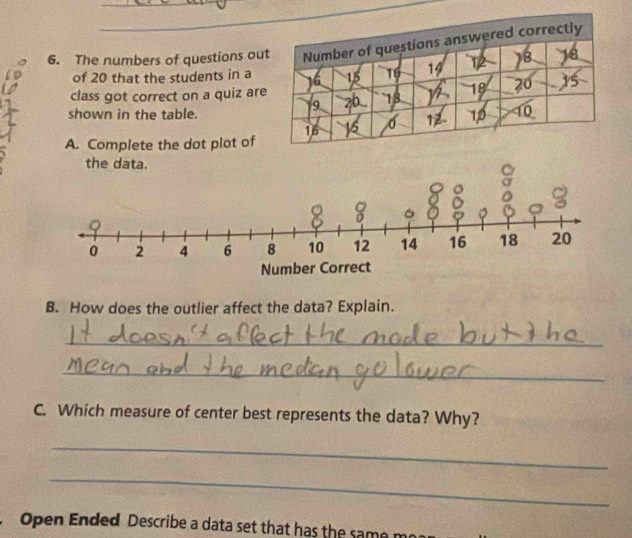 6. The numbers of questions out
of 20 that the students in a
class got correct on a quiz are
shown in the table.
Number of questions answered correctly
16 15 16 14 12 18 18
19 20 18 17 18 20 15
16 15 0 12 10 10
A. Complete the dot plot of
the data.
0 2 4 6 8 10 12 14 16 18 20
Number Correct
B. How does the outlier affect the data? Explain.
It doesn't affect the mode but the
mean and the median go lower
C. Which measure of center best represents the data? Why?
Open Ended Describe a data set that has the same